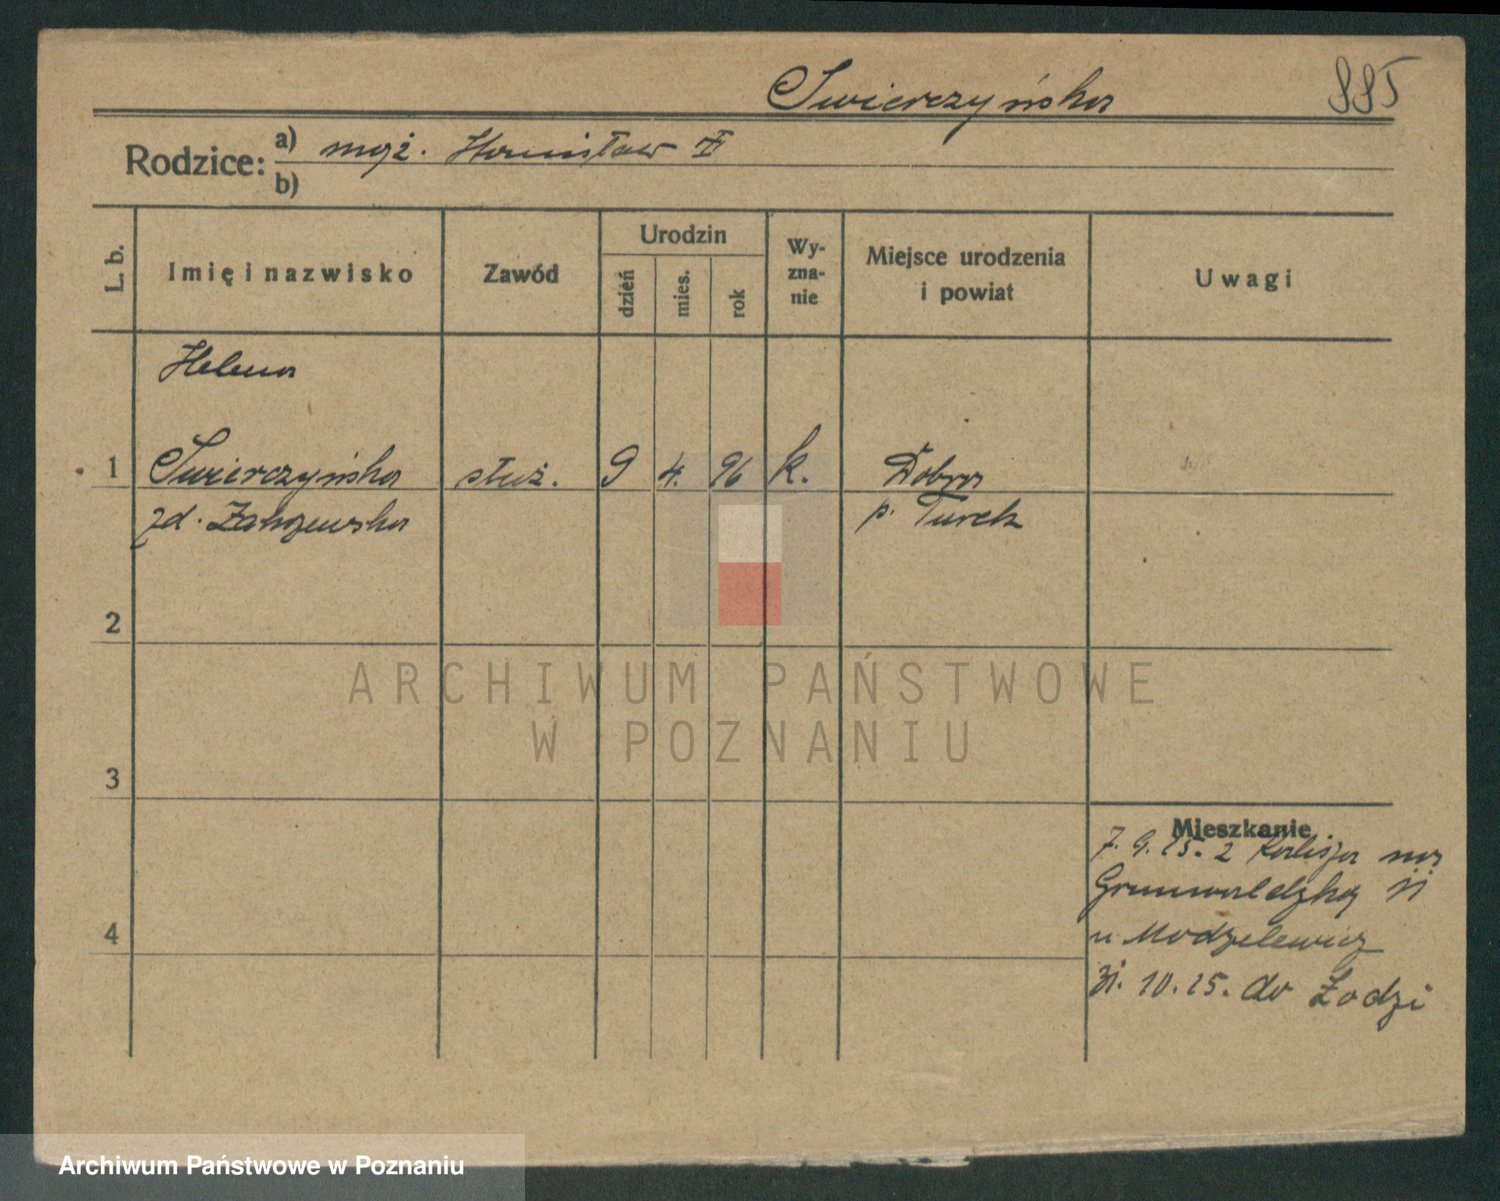 Swierczyńska
885
Rodzice:
a) mąż. Stanisław
b)
L. b.
Imię i nazwisko
Zawód
Urodzin
dzień
mies.
rok
Wy-
zna-
nie
Miejsce urodzenia
i powiat
Uwagi
Helena
1 Swierczyńska służ. 9 4. 96 k. Dobra
zd. Zakrzewska p. Turek
2
3
4
Mieszkanie
7. 9. 25. z Kalisza na
Grunwaldzką 11
u Modzelewicz
31. 10. 25. do Łodzi
ARCHIWUM PAŃSTWOWE
W POZNANIU
Archiwum Państwowe w Poznaniu